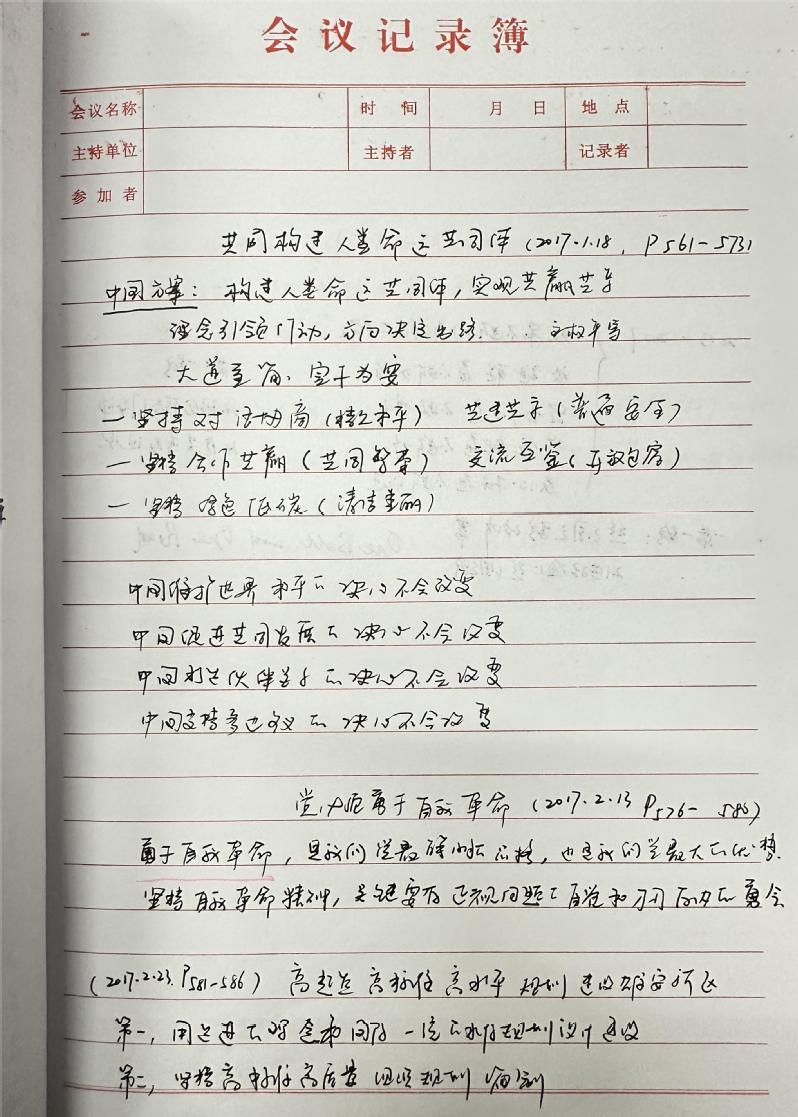 会议记录簿
会议名称 时间 月 日 地点
主持单位 主持者 记录者
参加者
共同构建人类命运共同体（2017.1.18，P561-573）
中国方案：构建人类命运共同体，实现共赢共享
理念引领行动，方向决定出路. 主权平等
大道至简、实干为要
一坚持对话协商（持久和平） 共建共享（普遍安全）
一坚持合作共赢（共同繁荣） 交流互鉴（开放包容）
一坚持绿色低碳（清洁美丽）
中国维护世界和平的决心不会改变
中国促进共同发展的决心不会改变
中国打造伙伴关系的决心不会改变
中国支持多边主义的决心不会改变
党 勇于自我革命（2017.2.13 P576-580）
勇于自我革命，是我们党最鲜明的品格，也是我们党最大的优势.
坚持自我革命精神，关键要有正视问题的自觉和刀刃向内的勇气
（2017.2.23. P581-586）高起点高标准高水平规划建设雄安新区
第一，用最先进的理念和国际一流的水准规划设计建设
第二，坚持高标准高质量组织规划编制